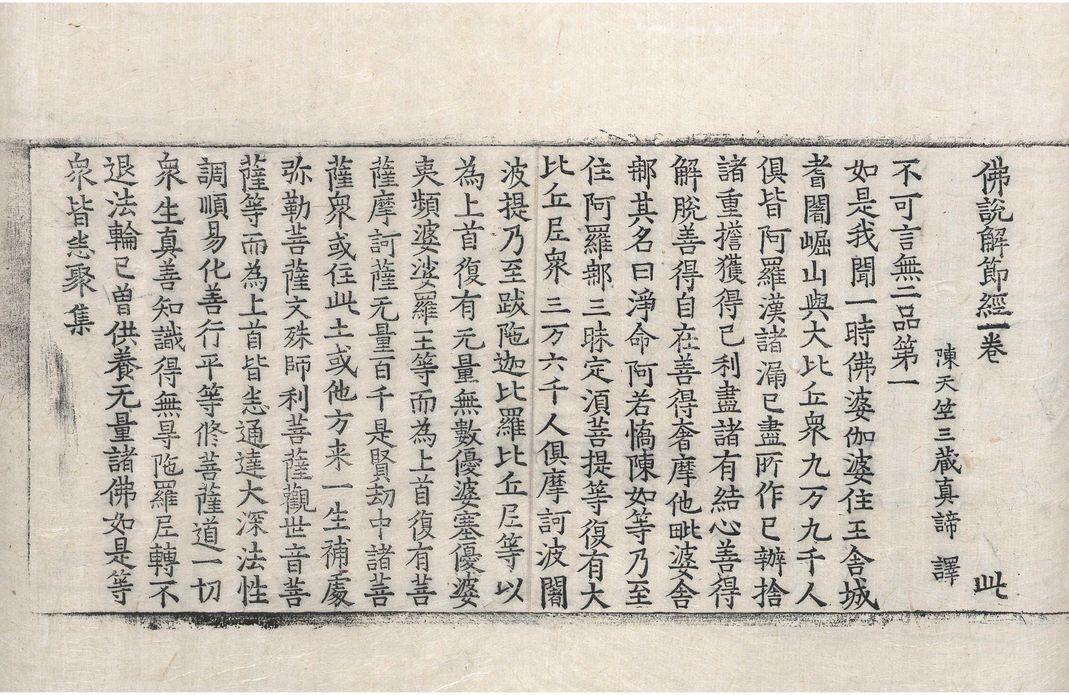 佛說解節經一卷 此
陳天竺三藏真諦 譯
不可言無二品第一
如是我聞一時佛婆伽婆住王舍城
耆闍崛山與大比丘衆九万九千人
俱皆阿羅漢諸漏已盡所作已辦捨
諸重擔獲得己利盡諸有結心善得
解脫善得自在善得奢摩他毗婆舍
那其名曰淨命阿若憍陳如等乃至
住阿羅那三昧定湏菩提等復有大
比丘尼衆三万六千人俱摩訶波闍
波提乃至跋陁迦比羅比丘尼等以
為上首復有无量無數優婆塞優婆
夷頻婆娑羅王等而為上首復有菩
薩摩訶薩无量百千是賢劫中諸菩
薩衆或住此土或他方来一生補處
弥勒菩薩文殊師利菩薩觀世音菩
薩等而為上首皆悉通達大深法性
調順易化善行平等修菩薩道一切
衆生真善知識得無㝵陁羅尼轉不
退法輪已曾供養无量諸佛如是等
衆皆悉聚集